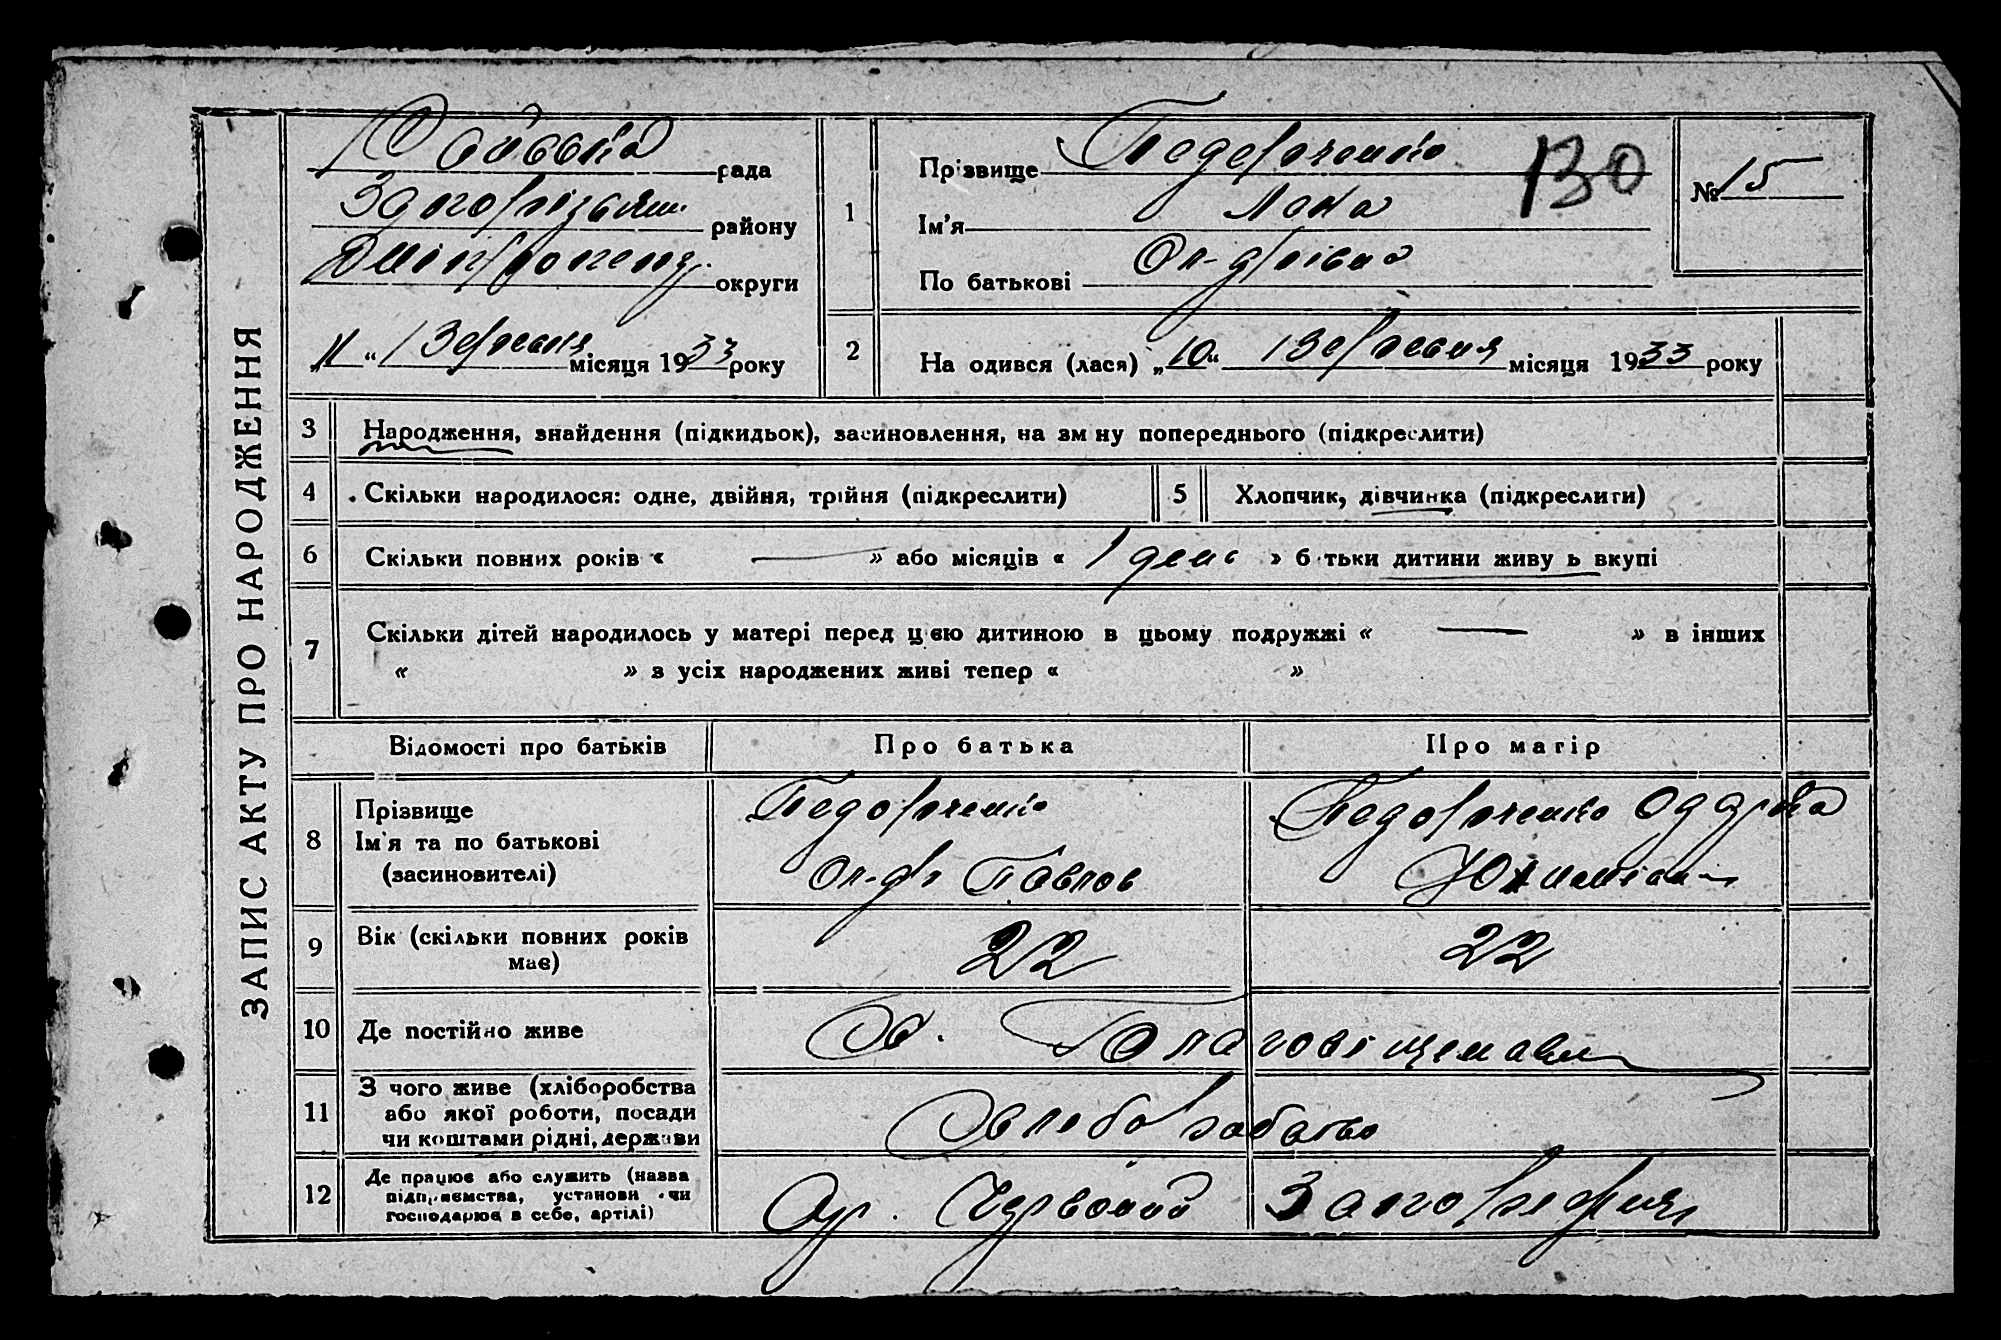 ЗАПИС АКТУ ПРО НАРОДЖЕННЯ
рада
району
округи
„11“ Вересня місяця 1933 року
1
Прізвище Педорченко
130
№ 15
Ім'я
По батькові
2
На одився (лася) „10“ Вересня місяця 1933 року
3
Народження, знайдення (підкидьок), засиновлення, на зм ну попереднього (підкреслити)
4
Скільки народилося: одне, двійня, трійня (підкреслити)
5
Хлопчик, дівчинка (підкреслити)
6
Скільки повних років « — » або місяців « 1 день » б тьки дитини живу ь вкупі
7
Скільки дітей народилось у матері перед цією дитиною в цьому подружжі « — » в інших
« » з усіх народжених живі тепер « »
Відомості про батьків
Про батька
Про матір
8
Прізвище
Ім'я та по батькові
(засиновителі)
Педорченко
Ол-др Павлов
Педорченко
9
Вік (скільки повних років
має)
22
22
10
Де постійно живе
Х. Благовіщенка
11
З чого живе (хліборобства
або якої роботи, посади
чи коштами рідні, держави
Хлеборобство
12
Де працює або служить (назва
підприємства, установи чи
господарює в себе, артілі)
Ар. Червоний